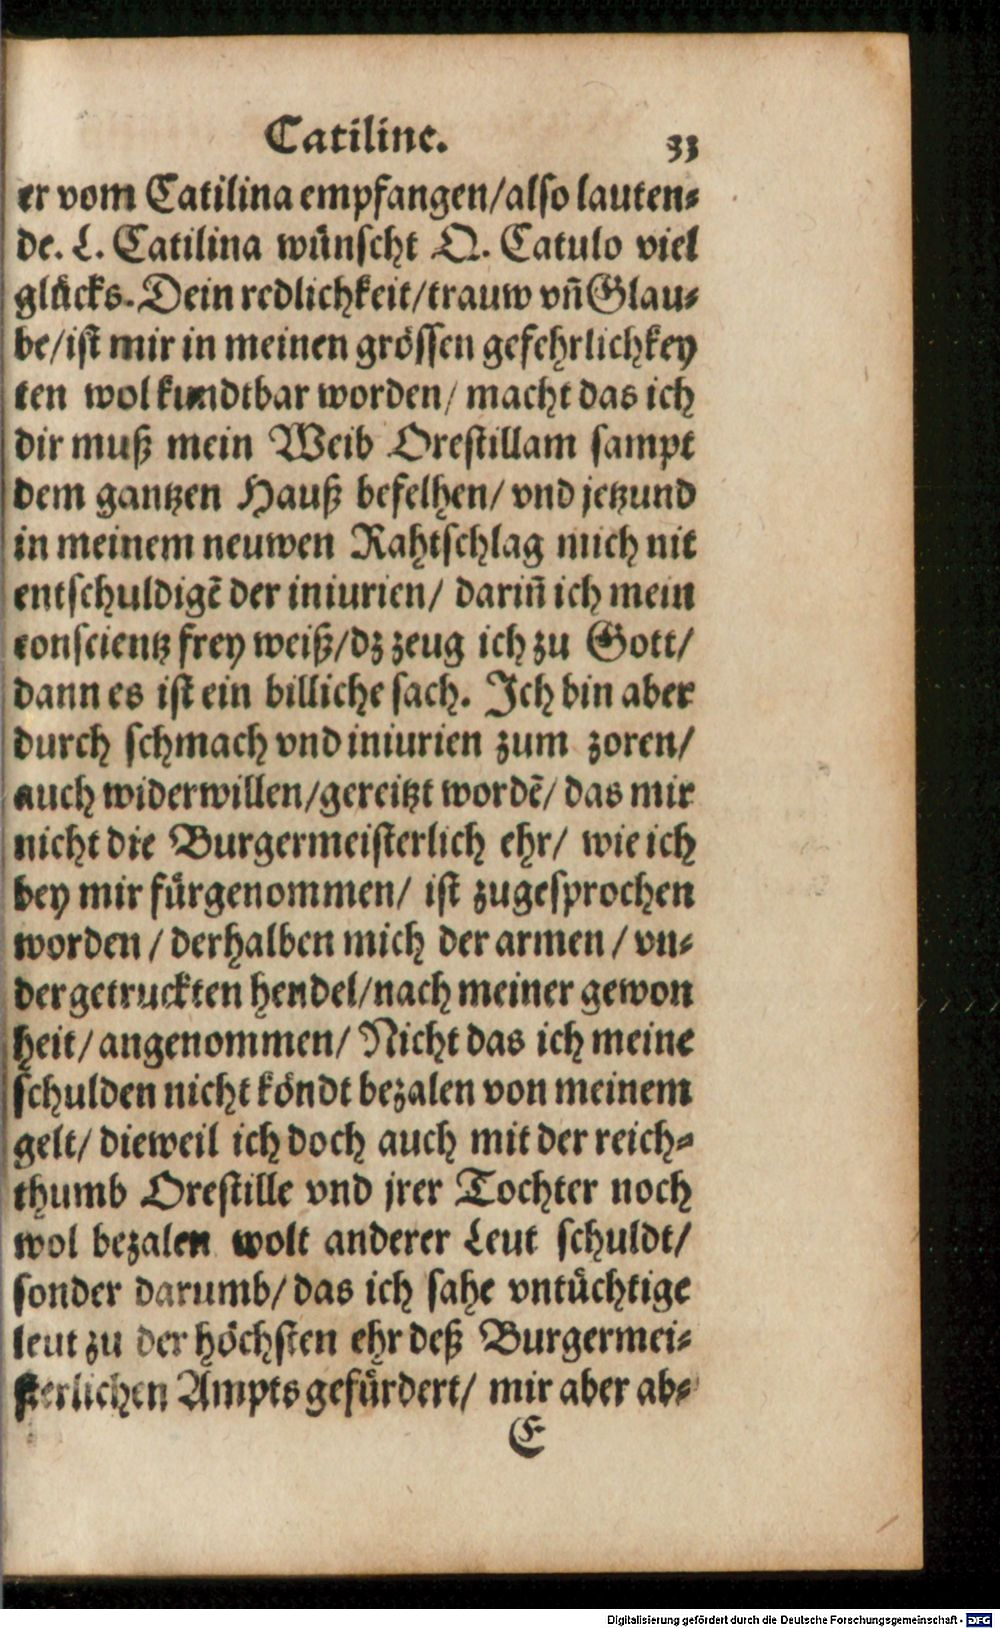 Catiline. 33
er vom Catilina empfangen/also lauten⸗
de. L. Catilina wünscht Q. Catulo viel
glücks. Dein redlichkeit/trauw vñ Glau⸗
be/ist mir in meinen grössen gefehrlichkey
ten wol kundtbar worden/ macht das ich
dir muß mein Weib Orestillam sampt
dem gantzen Hauß befelhen/ vnd jetzund
in meinem neuwen Rahtschlag mich nit
entschuldigē der iniurien/ dariñ ich mein
conscientz frey weiß/dz zeug ich zu Gott/
dann es ist ein billiche sach. Ich bin aber
durch schmach vnd iniurien zum zoren/
auch widerwillen/gereitzt wordē/ das mir
nicht die Burgermeisterlich ehr/ wie ich
bey mir fürgenommen/ ist zugesprochen
worden/ derhalben mich der armen/ vn⸗
dergetruckten hendel/nach meiner gewon
heit/angenommen/ Nicht das ich meine
schulden nicht köndt bezalen von meinem
gelt/ dieweil ich doch auch mit der reich⸗
thumb Orestille vnd jrer Tochter noch
wol bezalen wolt anderer Leut schuldt/
sonder darumb/das ich sahe vntüchtige
leut zu der höchsten ehr deß Burgermei⸗
sterlichen Ampts gefürdert/ mir aber ab⸗
E
Digitalisierung gefördert durch die Deutsche Forschungsgemeinschaft - DFG